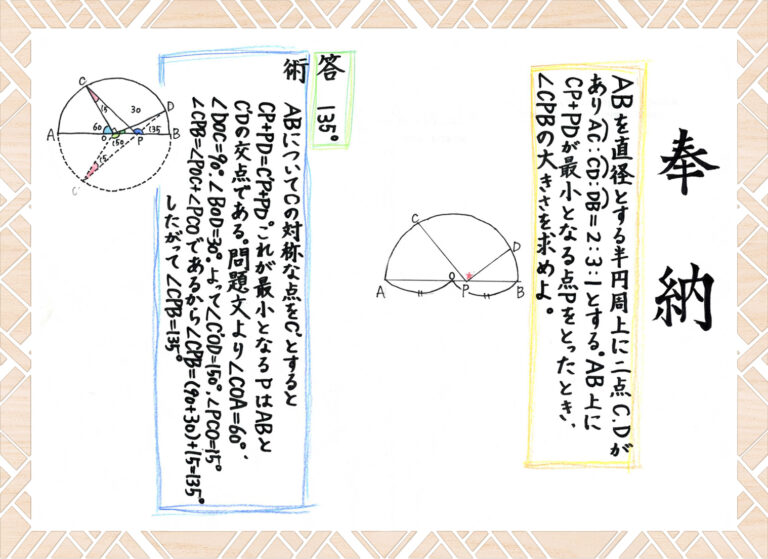 奉納
ABを直径とする半円周上に二点C.Dが
ありAC:CD:DB=2:3:1とする。AB上に
CP+PDが最小となる点Pをとったとき、
∠CPBの大きさを求めよ。
C
D
A
O
P
B
答 135°
術
ABについてCの対称な点をC'とすると
CP+PD=C'P+PD。これが最小となるPはABと
C'Dの交点である。問題文より∠COA=60°、
∠DOC=90°、∠BOD=30°。よって∠C'OD=150°、∠PCO=15°
∠CPB=∠POC+∠PCOであるから∠CPB=(90+30)+15=135°
したがって∠CPB=135°
C
15
30
D
A
60
O
150
P
135
B
15
C'